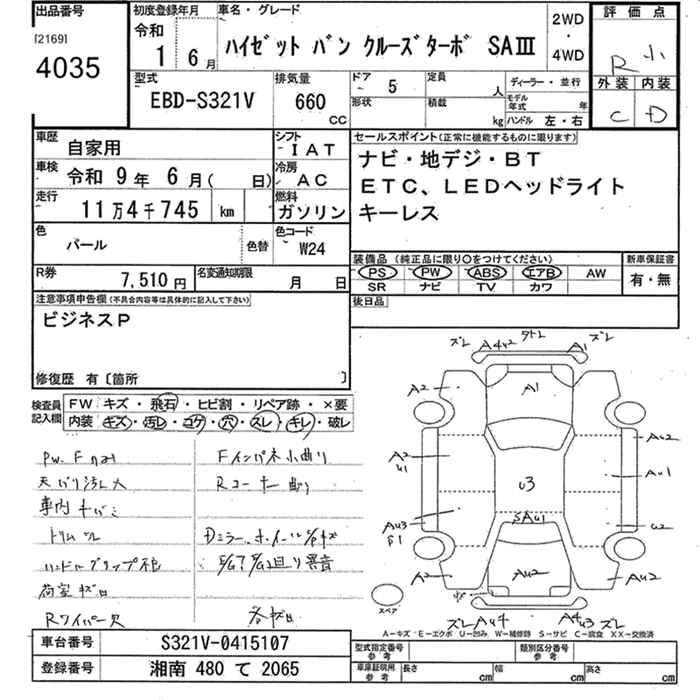 出品番号
[2169]
4035
初度登録年月
令和
1 6月
車名・グレード
ハイゼット バン クルーズターボ SAⅢ
2WD
・
4WD
評価点
R 小
外装 内装
C D
型式
EBD-S321V
排気量
660
CC
ドア 5
形状
定員 人
積載 kg
ディーラー・並行
モデル年式 年
ハンドル 左・右
車歴
自家用
シフト
IAT
車検
令和 9年 6月( 日)
冷房
AC
走行
11万4千745 km
燃料
ガソリン
色
パール
色替
色コード
W24
R券
7,510円
名変通知期限
月 日
セールスポイント(正常に機能するものに限ります)
ナビ・地デジ・BT
ETC、LEDヘッドライト
キーレス
装備品(純正品に限り○をつけてください)
PS PW ABS エアB AW
SR ナビ TV カワ
新車保証書
有・無
後日品
注意事項申告欄(不具合内容等は具体的に記入して下さい)
ビジネスP
修復歴 有〔箇所 〕
検査員記入欄
FW キズ・飛石・ヒビ割・リペア跡・×要
内装 キズ・汚レ・コゲ・穴・スレ・キレ・破レ
天バリ汚レ大
車内キバミ
荷室キズ
Rワイパー欠
Fインパネ小曲り
Rコーナー曲り
ズレ A4 ズレ
A1
A2 A1
U3
A2
U1
AU2
AU1
SAU1
AU3
U2
A2 AU2 AU2
ズレ AU4 A4 U3 ズレ
スペア
A-キズ E-エクボ U-凹み W-補修跡 S-サビ C-腐食 XX-交換済
車台番号
S321V-0415107
登録番号
湘南 480 て 2065
型式指定番号
参考
類別区分番号
参考
車庫証明用
参考
長さ cm
幅 cm
高さ cm